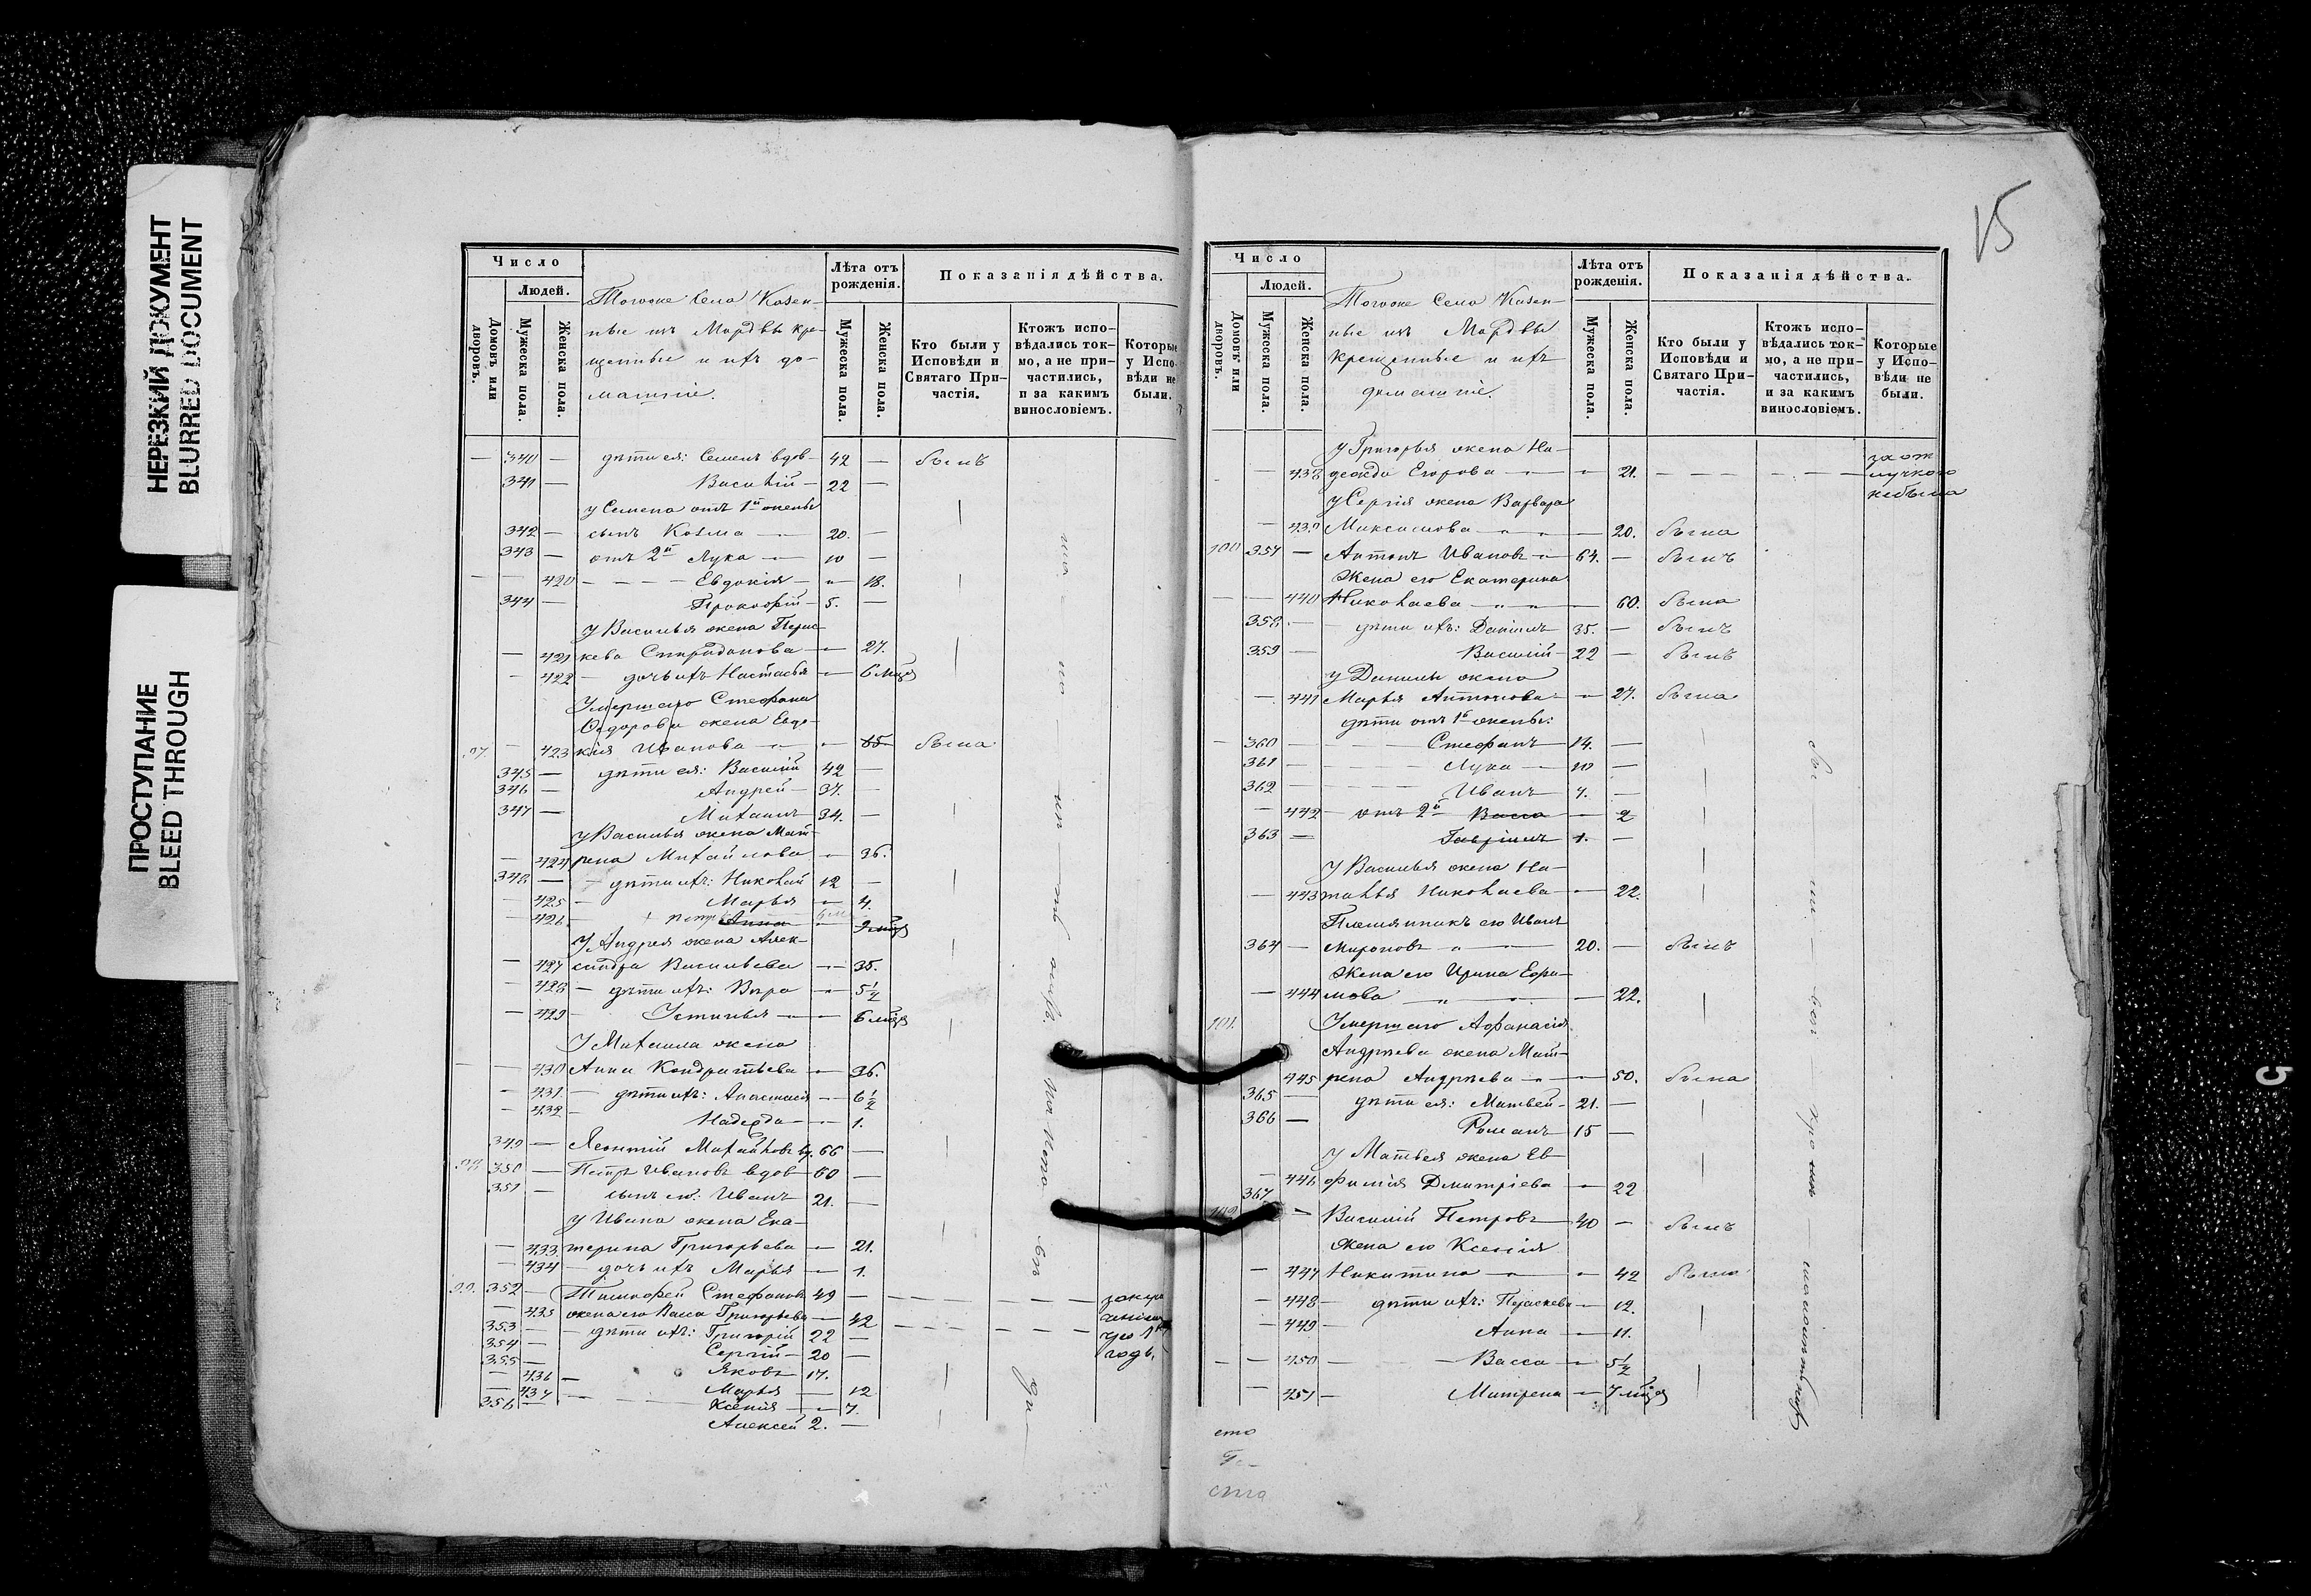 НЕРЕЗКИЙ ДОКУМЕНТ
BLURRED DOCUMENT
ПРОСТУПАНИЕ
BLEED THROUGH
Число
Людей.
Домовъ или дворовъ.
Мужеска пола.
Женска пола.
Тогоже Села Казен-
ные изъ Мордвы кре-
щенные и ихъ до-
машніе.
Лѣта отъ рожденія.
Мужеска пола.
Женска пола.
Показанія дѣйства.
Кто были у Исповѣди и Святаго При-частія.
Ктожъ испо-вѣдались ток-мо, а не при-частились, и за какимъ винословіемъ.
Которые у Испо-вѣди не были.
— 340 — дѣти ея: Семенъ вдов— 42 — былъ
341 — Василій — 22 —
у Семена отъ 1й жены
342 — сынъ Козма — 20. —
343 — отъ 2й Лука — 10 —
— — 420 — Евдокія — „ — 18.
344 — Прокофій — 5. —
у Василья жена Парас-
— 421 кева Спиридонова — 27.
— 422 — дочь ихъ Настасья — 6 мѣця
Умершаго Стефана
Ѳедорова жена Евдо-
97. — 423 кія Иванова — 65 была
345 — дѣти ея: Василій 42 —
346 — Андрей — 37. —
347 — Михаилъ — 34. —
у Василья жена Мат-
— 424 рена Михайлова — 36.
348 — дѣти ихъ: Николай 12 —
— 425 — Марья — 4.
— 426 — Анна — 9 мѣця
У Андрея жена Алек-
— 427 сандра Васильева — 35.
— 428 — дѣти ихъ: Вѣра — 5½
— 429 — Устинья — 6 мѣця
У Михаила жена
— — 430 Анна Кондратьева — 36.
— 431 — дѣти ихъ: Анастасія — 6½
— 432 — Надежда — 1.
349 — Леонтій Михайловъ вд. 66 —
98 350 — Петръ Ивановъ вдов— 60 —
351 — сынъ его: Иванъ 21. —
у Ивана жена Ека-
— 433 терина Григорьева — 21.
— 434 — дочь ихъ Марья — 1.
99. 352 — Тимофей Стефановъ 49 —
— 435 жена его Васса Григорьева — 42
353 — дѣти ихъ: Григорій 22 —
354 — Сергій — 20 —
355 — Яковъ 17.
— 436 — Марья — 12
— 437 — Ксенія — 7.
356 — Алексей 2. —
годъ.
15
Число
Людей.
Домовъ или дворовъ.
Мужеска пола.
Женска пола.
Тогоже Села Казен-
ные изъ Мордвы
крещенные и ихъ
домашніе.
Лѣта отъ рожденія.
Мужеска пола.
Женска пола.
Показанія дѣйства.
Кто были у Исповѣди и Святаго При-частія.
Ктожъ испо-вѣдались ток-мо, а не при-частились, и за какимъ винословіемъ.
Которые у Испо-вѣди не были.
у Григорья жена На-
— 438 дежда Егорова — „ — 21. — за от
лучкою
не была
у Сергія жена Варвара
— 439 Максимова — 20. была
100 357 — Антонъ Ивановъ — 64. — былъ
Жена его Екатерина
— — 440 Николаева — 60. была
358 — дѣти ихъ: Даніилъ 35. — былъ
359 — Василій — 22 — былъ
у Данилы жена
— 441 Марья Антонова — 27. была
дѣти отъ 1й жены:
— 360 — Стефанъ — 14. —
361 — Лука — 10 —
362 — Иванъ — 7. —
— 442 — отъ 2й Васса — 2
363 — Гавріилъ — 1. —
у Василья жена На-
— 443 талья Николаева — 22.
Племянникъ его Иванъ
364 — Мироновъ — 20. — былъ
Жена его Ирина Ефи-
— 444 мова — 22.
101. Умершаго Афанасія
Андреева жена Мат-
445 рена Андреева — 50. была
365 — дѣти ея: Матвей — 21. —
366 — Романъ 15 —
у Матвея жена Ев-
— 446 фимія Дмитріева — 22
102 367 — Василій Петровъ — 40 — былъ
жена его Ксенія
— 447 Никитина — 42 была
— 448 — дѣти ихъ: Параскева — 12.
— 449 — Анна — 11.
— — 450 — Васса — 5½
— 451 — Матрена — 7 мѣця
5